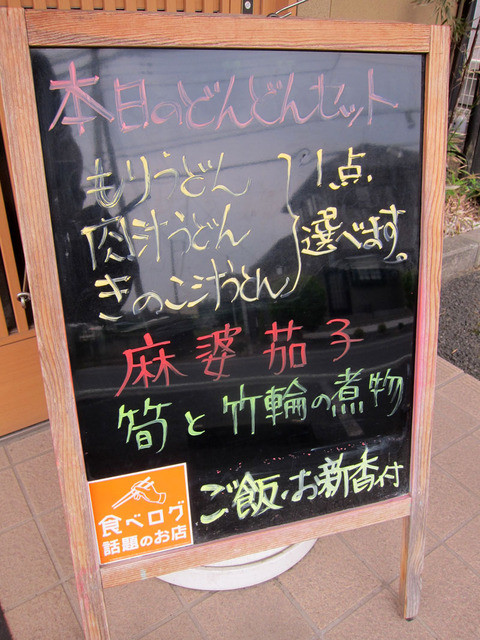 本日のどんどんセット
もりうどん
肉汁うどん
きのこ汁うどん
1点、
選べます。
麻婆茄子
筍と竹輪の煮物
ご飯・お新香付
食べログ
話題のお店